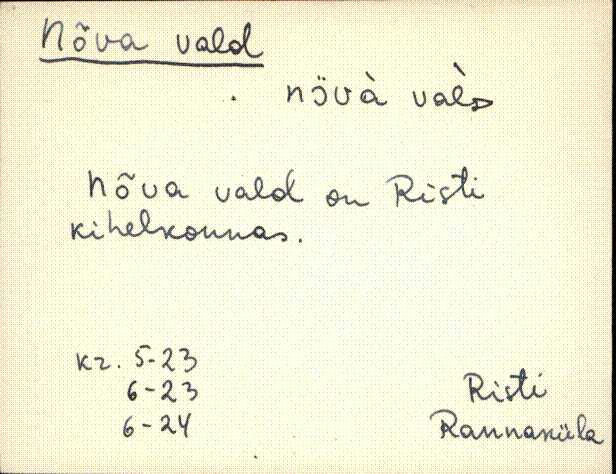 Nõva vald
nõvà val̀D
Nõva vald on Risti
kihelkonnas.
kr. 5-23
6-23
6-24
Risti
Rannaküla